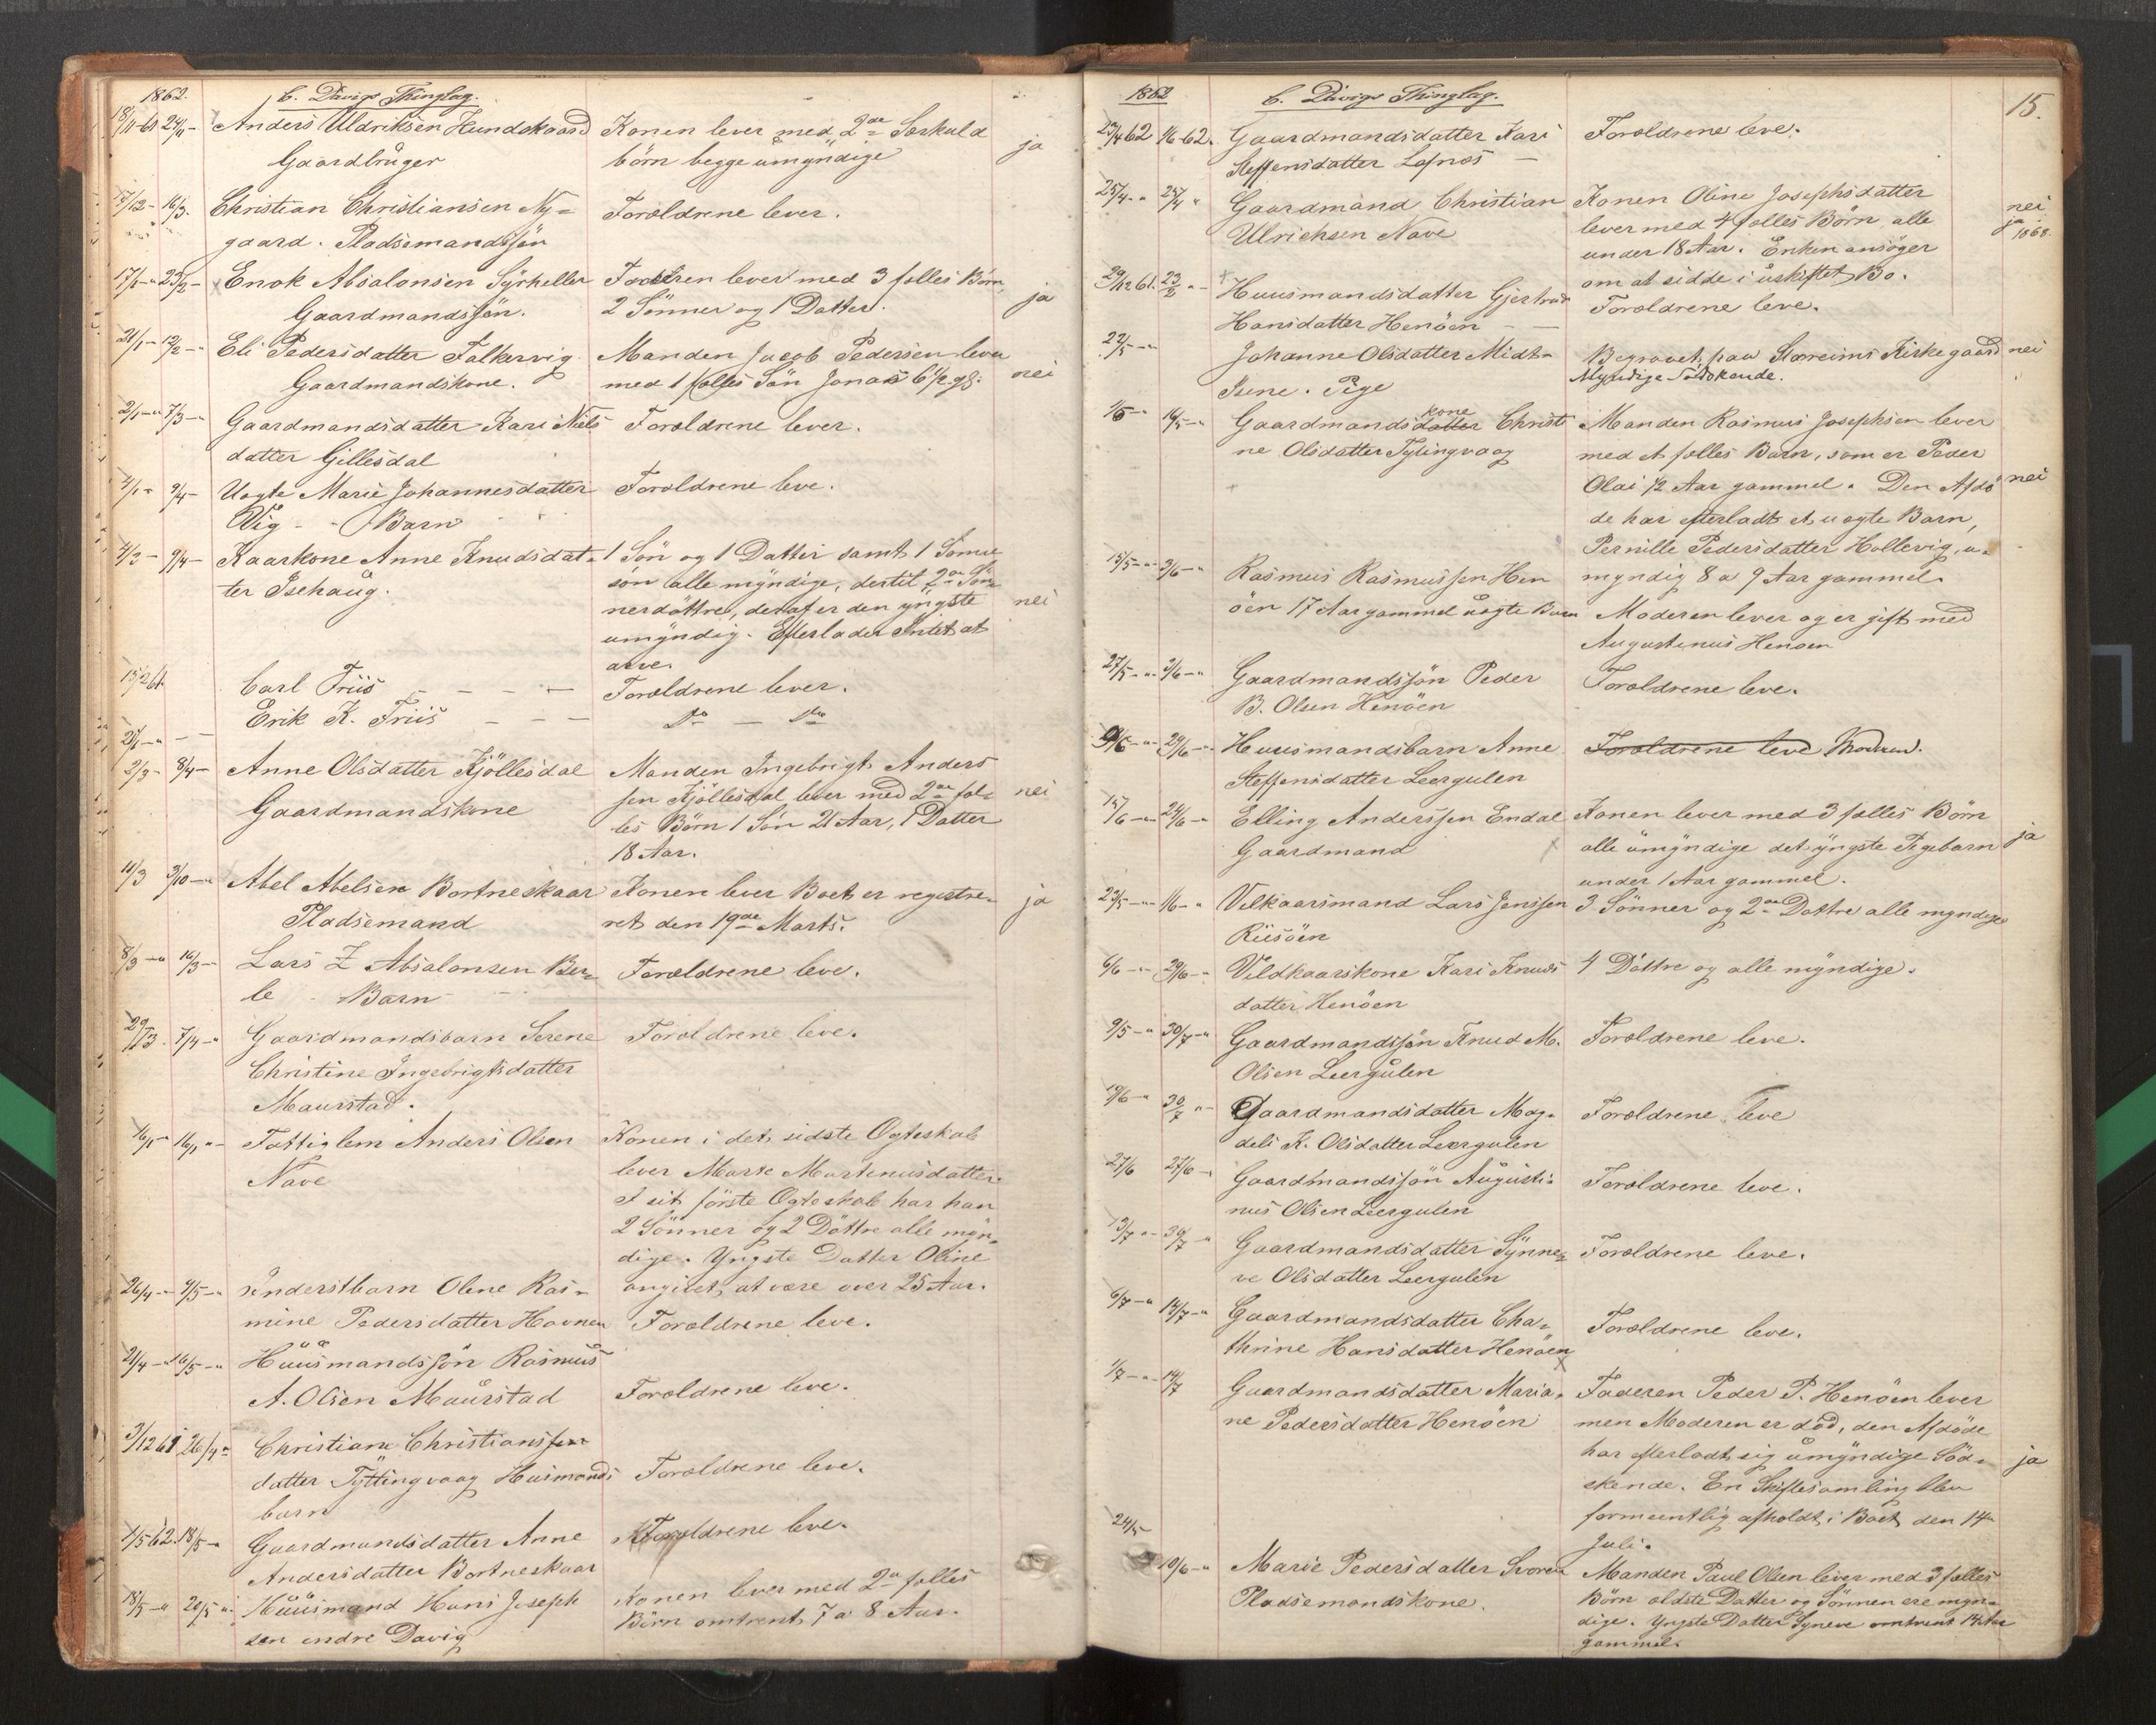 1862.
C. Davigs Thinglag.
18/11-61 24/1 - Anders Uldriksen Hundskaard Konen lever med 2de Særkuld ja
Gaardbrúger børn begge úmyndige
17/12 - 16/3. Christian Christiansen Ny= Forældrene lever.
gaard. Pladsemandssøn
17/1 -" 23/2 - Enok Absalonsen Sÿrheller lever med 3 fælles Børn,
Gaardmandssøn. 2 Sönner og 1 Datter. ja
21/1 - 12/2 -" Eli Pedersdatter Falkervig Manden Jacob Pedersen lever
Gaardmandskone. med 1 fælles Søn Jonas 6 1/2 gl. nei
2/1 -" 7/3 -" Gaardmandsdatter Kari Niels Forældrene lever.
datter Gillesdal
4/1 - 9/4 - Uægte Marie Johannesdatter Forældrene leve.
Vig - - Barn
4/3 - 9/4 - Kaarkone Anne Knudsdat= 1 Sön og 1 Datter samt 1 Sönne
ter Isehaúg. søn alle myndige, dertil 2de Sön=
nerdöttre, deraf er den yngste nei
umÿndig. Efterlader Intet at
arve.
15/2 61. Carl Friis - - - - Forældrene lever.
Erik K. Friis - - - Do - Do
21/1 -" - -
2/3 - 8/4 - Anne Olsdatter Kjöllesdal Manden Ingebrigt Anders
Gaardmandskone sen Kjöllesdal lever med 2de fæl= nei
les Börn 1 Sön 21 Aar, 1 Datter
18 Aar.
11/3 3/10 -" Abel Abelsen Bortneskaar Konen lever Boet er registre= ja
Pladsemand ret den 19de Marts.
8/3 -" 16/3 - Lars Z Absalonsen Ber= Forældrene leve.
le - Barn -
29/3 7/4 -" Gaardmandsbarn Serene Forældrene leve.
Christine Ingebrigtsdatter
Maurstad.
16/1 -" 16/1 " - Fattiglem Anders Olsen Konen i det sidste Ægteskab
Nave lever Marte Martinusdatter.
I sit förste Ægteskab har han
2 Sönner og 2 Döttre alle myn=
dige. Yngste Datter Oline
26/4 - 9/5 -" Inderstbarn Oline Ras= angives at være over 25 Aar.
mine Pedersdatter Havnen Forældrene leve.
21/4 -" 16/5 -" Húúsmandssøn Rasmus
A. Olsen Maúrstad Forældrene leve.
3/12 61 26/4 " Christiane Christians
datter Tÿttingvaag Husmands Forældrene leve.
barn
4/5 62. 18/5 -" Gaardmandsdatter Anne Forældrene leve.
Andersdatter Bortneskaar
18/5 -" 20/5 " Húúsmand Hans Joseph Konen lever med 2de fælles
sen indre Davig Börn omtrent 7 a 8 Aar.
1862 15.
C. Davigs Thinglag.
23/4 62 1/6 62. Gaardmandsdatter Kari Forældrene leve.
Steffensdatter Lefnæs -
25/4 -" 25/4 " Gaardmand Christian Konen Oline Josephsdatter nei
Ulrichsen Nave lever med 4 fælles Börn alle ja 1868.
under 18 Aar. Enken ansöger
om at sidde i úskiftet Bo.
29/12 61. 23/2 " - Huusmandsdatter Gjertrud
Hansdatter Henöen - - Forældrene leve.
22/5 - " Johanne Olsdatter Midt= Begravet paa Starreims Kirkegaard nei
Isene. Pige Myndige Södskende.
1/5 - " 16/5 - " Gaardmandsdatter kone Christi Manden Rasmus Josephsen lever
ne Olsdatter Tytingvaag med et fælles Barn, som er Peder
Olai 12 Aar gammel. Den Afdö nei
de har efterladt et uægte Barn,
Pernille Pedersdatter Hollevig, u=
15/5 -" 3/6 -" Rasmus Rasmussen Hen myndig 8 a 9 Aar gammel.
öen 17 Aar gammel uægte Barn Moderen lever og er gift med
Augustinus Henöen
27/5 -" 3/6 -" Gaardmandssön Peder Forældrene leve.
B. Olsen Henöen
9/6 -" 29/6 -" Huusmandsbarn Anne Forældrene leve Moderen.
Steffensdatter Leergulen
15/6 -" 24/6 -" Elling Anderssen Endal Konen lever med 3 fælles Börn
Gaardmand alle úmÿndige det yngste Pigebarn ja
under 1 Aar gammel.
29/5 -" 1/6 - " Vilkaarsmand Lars Jenssen 3 Sönner og 2de Döttre alle myndige
Riisöen
6/6 -" 29/6 -" Vildkaarskone Kari Knuds 4 Döttre og alle mÿndige.
datter Henöen
9/5 -" 30/7 -" Gaardmandssön Knud M. Forældrene leve.
Olsen Leergúlen
19/6 -" 30/7 " - Gaardmandsdatter Mag= Forældrene leve
deli K. Olsdatter Leergulen
27/6 27/6 - Gaardmandssön Aúgústi= Forældrene leve.
nus Olsen Leergulen
13/7 " - 30/7 " Gaardmandsdatter Sÿnne= Forældrene leve.
ve Olsdatter Leergulen
6/7 -" 14/7 -" Gaardmandsdatter Cha= Forældrene leve.
thrine Hansdatter Henöen
1/7 -" 14/7 Gaardmandsdatter Maria= Faderen Peder P. Henöen lever
ne Pedersdatter Henöen men Moderen er död, den Afdöde
har efterladt sig úmÿndige Söd= ja
skende. En Skiftesamling blev
formeentlig afholdt i Boet den 14de
24/5 Juli.
10/6 -" Marie Pedersdatter Svoren Manden Paul Olsen lever med 3 fælles
Pladsemandskone. Börn ældste Datter og Sönnen ere myn=
dige. Yngste Datter Syneve omtrent 14 Aar
gammel.